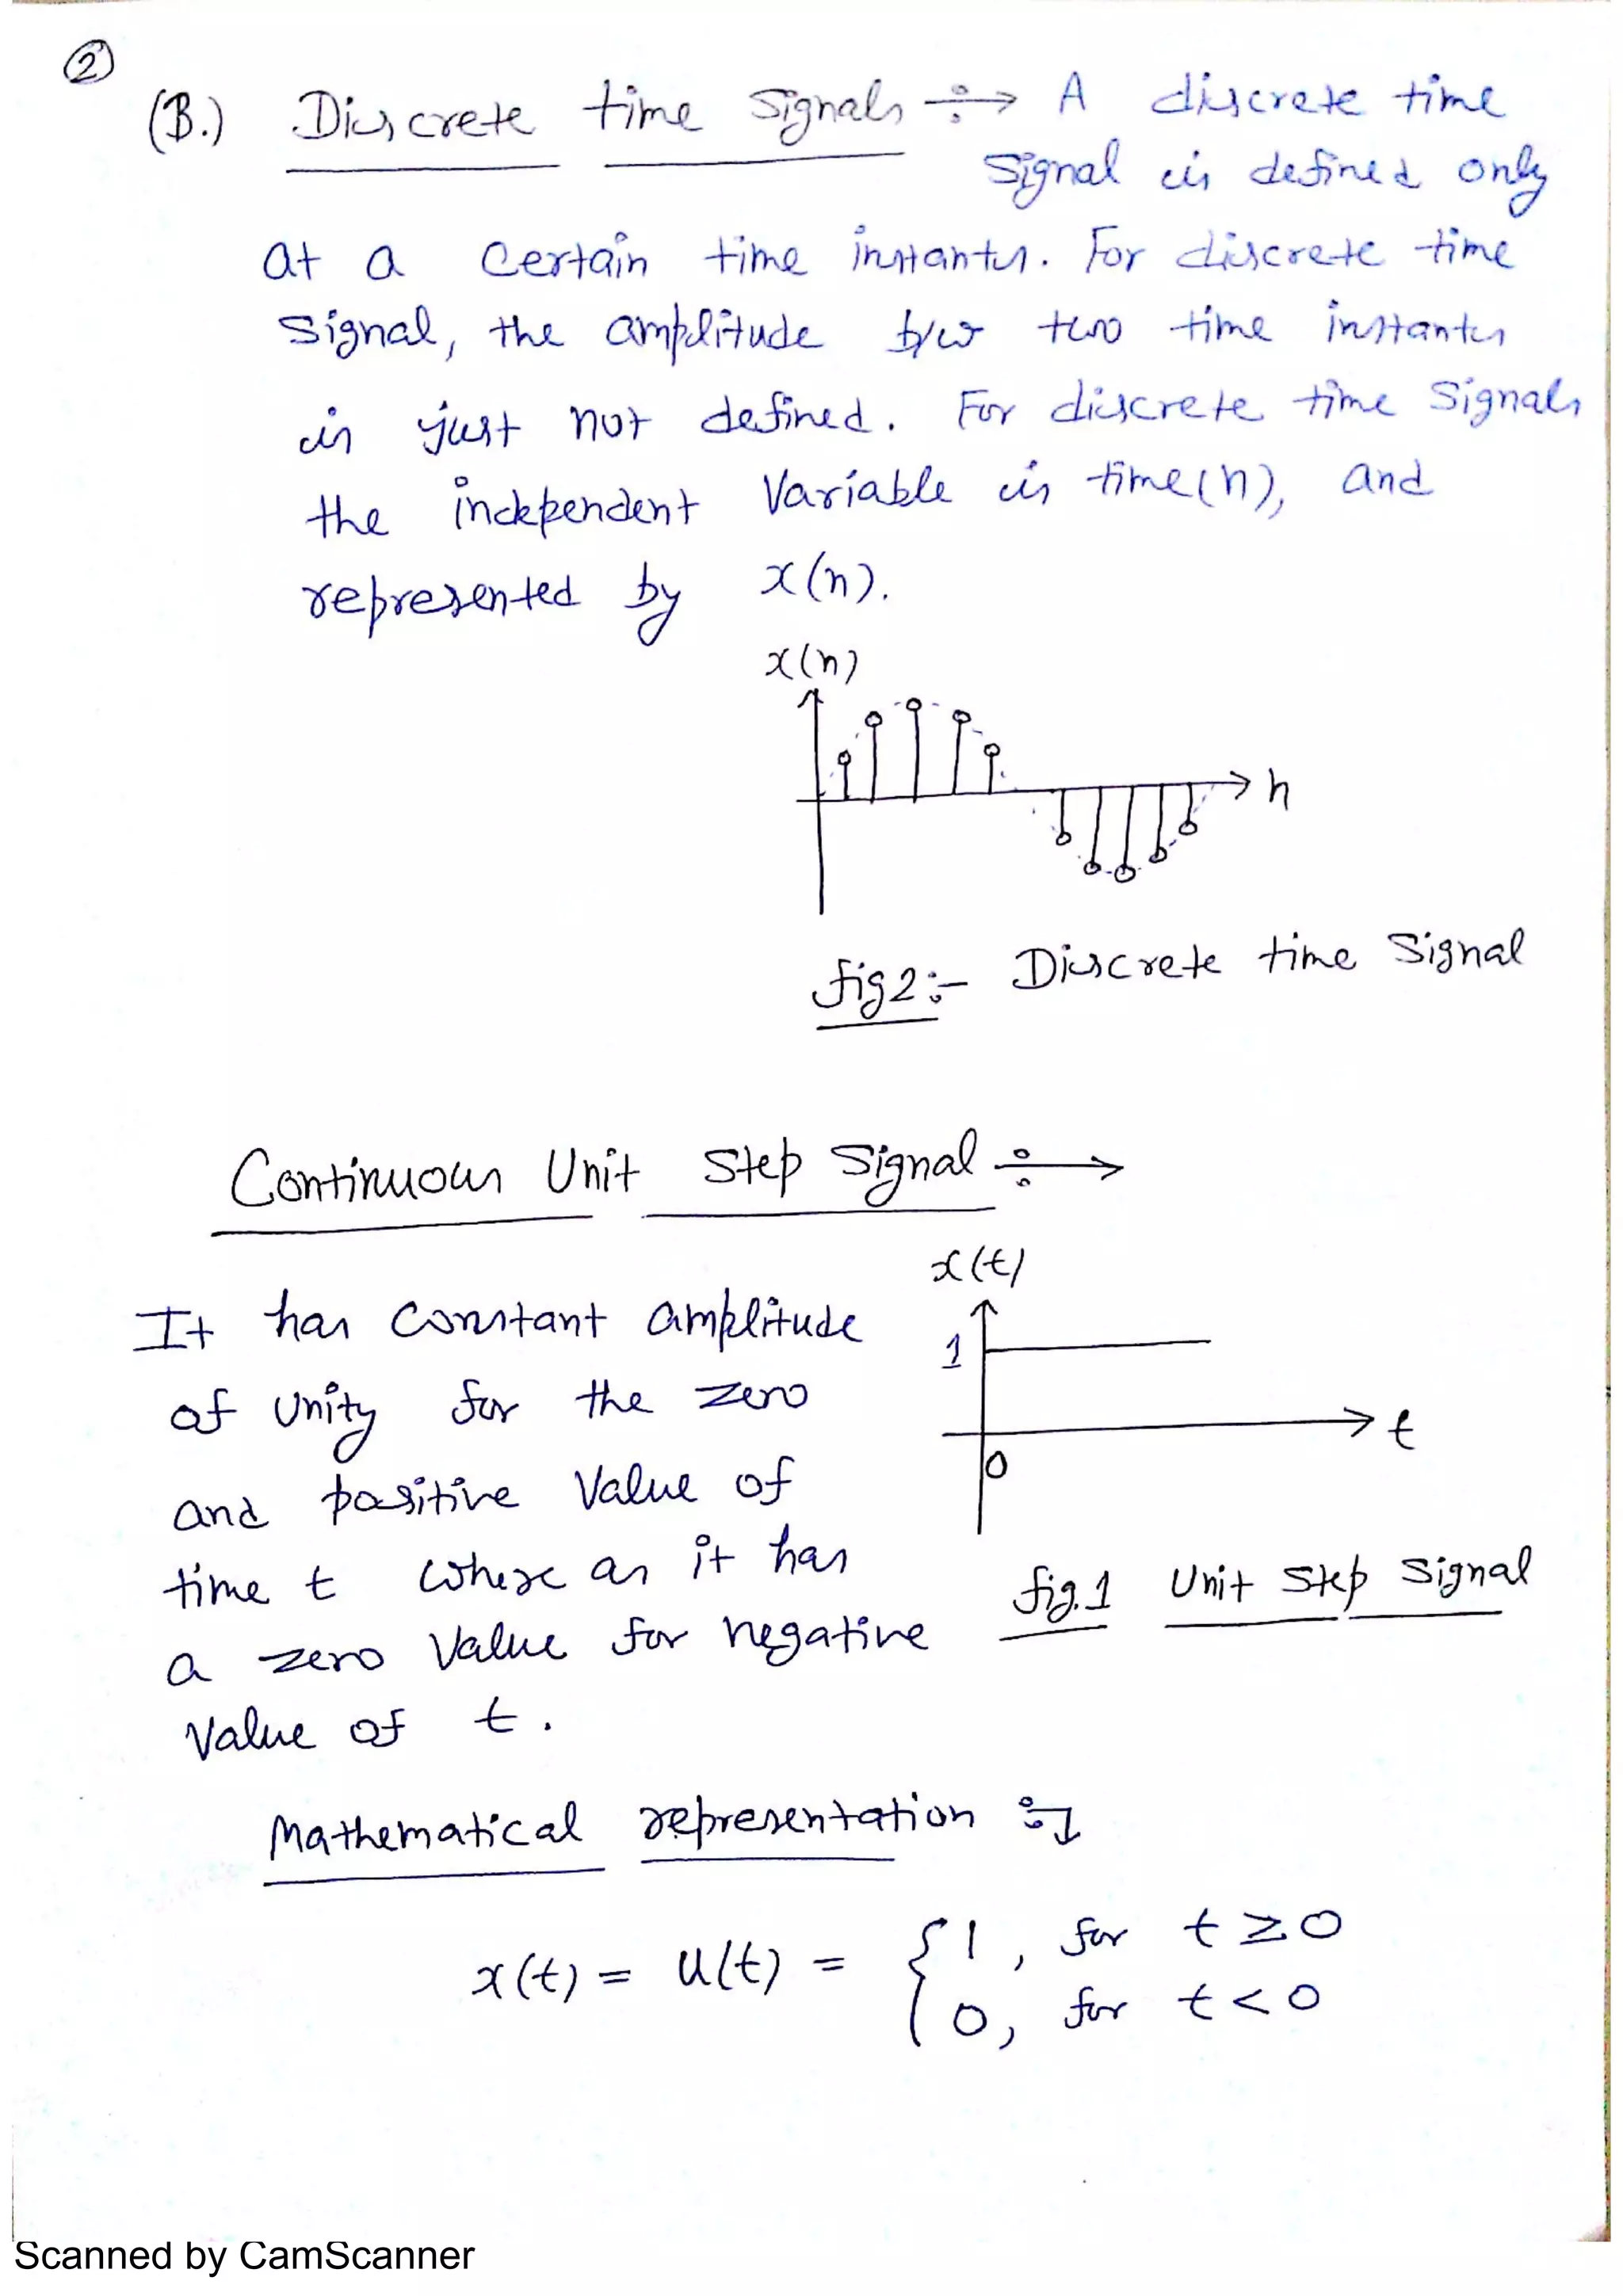 ②
(B.) Discrete time Signals ÷→ A discrete time
Signal is defined only
at a Certain time instants. For discrete time
Signal, the amplitude b/w two time instants
is just not defined. For discrete time Signals
the independent Variable is time(n), and
represented by x(n).
x(n)
n
fig2:- Discrete time Signal
Continuous Unit Step Signal ÷→
x(t)
It has Constant amplitude
1
of Unity for the zero
t
0
and positive Value of
time t where as it has
fig.1 Unit Step Signal
a zero Value for negative
Value of t.
Mathematical representation :-
x(t) = u(t) = { 1, for t ≥ 0
0, for t < 0
Scanned by CamScanner